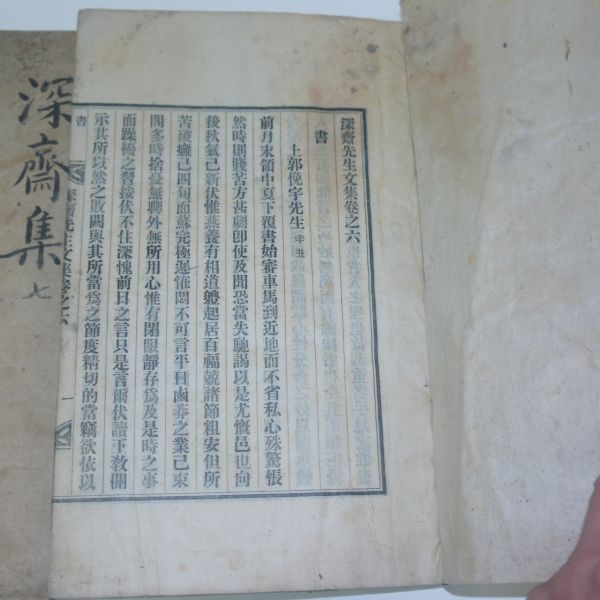 深齋集
七
深齋先生文集卷之六
書
上郭俛宇先生 辛丑
前月末領中夏下覆書始審車馬到近地而不省私心殊驚悵
然時則賤苦方甚劇卽使及聞恐當失驰謁以是尤慨邑也向
後秋氣已新伏惟燕養有相道軆起居百福兢諸節粗安但所
苦破癰已四旬而蘇完極遲惟悶不可言平日鹵莽之業已束
閣多時捨憂無聊外無所用心惟有閉眼靜存爲及是時之事
而躁擾之習挨伏不住深愧前日之言只是言爾伏讀下敎開
示其所以然之故閫與其所當爲之節度精切的當竊欲依以
書
深齋先生文集卷之六
一